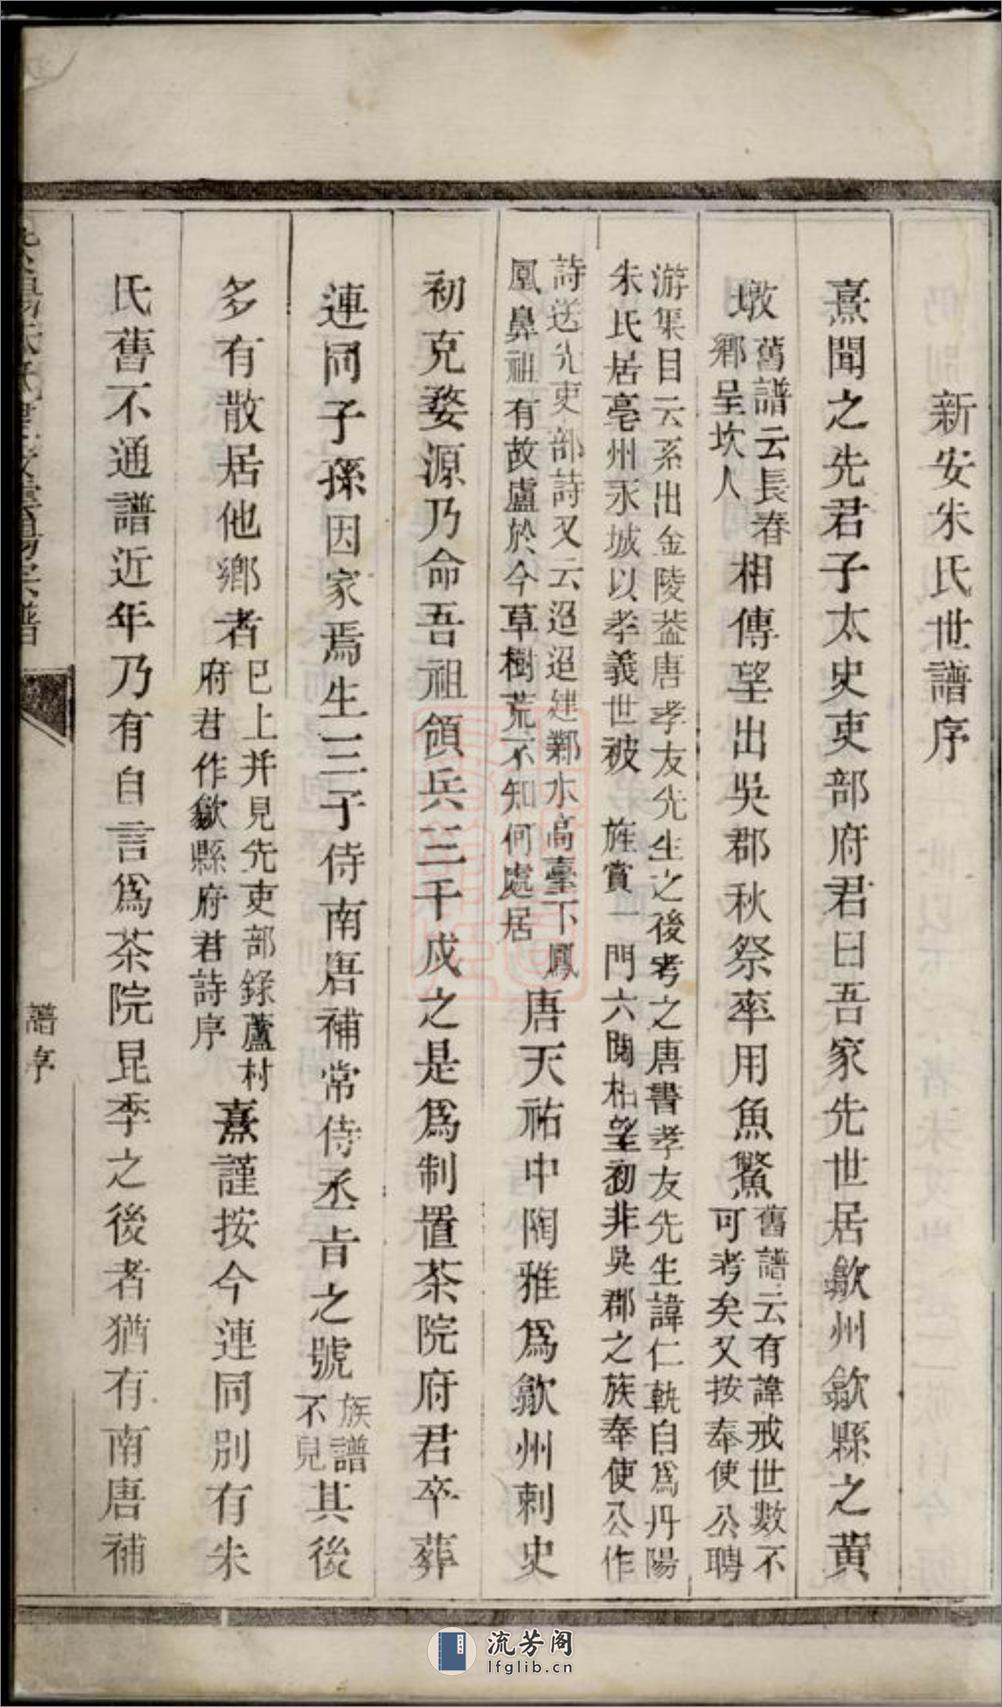 新安朱氏世譜序
熹聞之先君子太史吏部府君曰吾家先世居歙州歙縣之黃
墩舊譜云長春鄉呈坎人相傳望出吳郡秋祭率用魚鱉舊譜云有諱戒世數不可考矣又按奉使公聘
游集目云系出金陵蓋唐孝友先生之後考之唐書孝友先生諱仁軌自爲丹陽
朱氏居亳州永城以孝義世被 旌賞一門六闕相望初非吳郡之族奉使公作
詩送先吏部詩又云迢迢建鄴水高臺下鳳
凰鼻祖有故廬於今草樹荒不知何處居唐天祐中陶雅爲歙州刺史
初克婺源乃命吾祖領兵三千戍之是爲制置茶院府君卒葬
連同子孫因家焉生三子侍南唐補常侍丞旨之號族譜不見其後
多有散居他鄉者已上并見先吏部錄蘆村府君作歙縣府君詩序熹謹按今連同別有朱
氏舊不通譜近年乃有自言爲茶院昆季之後者猶有南唐補
譜序
流芳阁
lfglib.cn